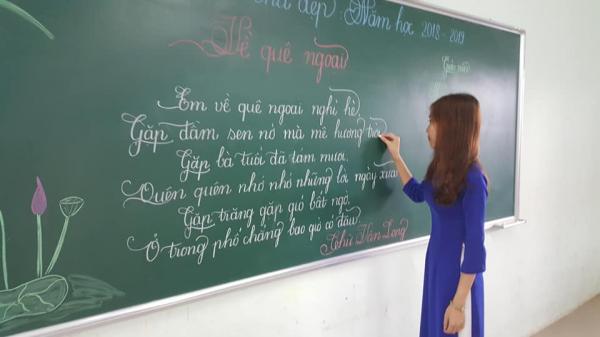 chữ đẹp Năm học 2018 - 2019
Về quê ngoại
Em về quê ngoại nghỉ hè,
Gặp đầm sen nở mà mê hương trời
Gặp bà tuổi đã tám mươi,
Quên quên nhớ nhớ những lời ngày xưa
Gặp trăng gặp gió bất ngờ,
Ở trong phố chẳng bao giờ có đâu
Chử Văn Long